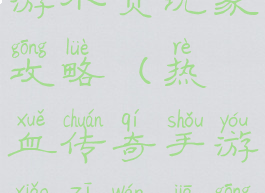 游不贵玩家
gōng lüè rè
攻略（热
xuě chuán qí shǒu yóu
血传奇手游
xiǎo zī wán jiā gōng